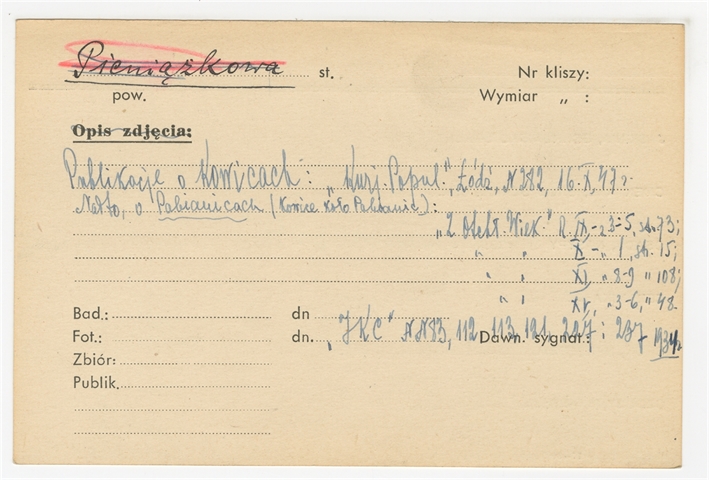 Pieniążkowa st. Nr kliszy:
pow. Wymiar „ :
Opis zdjęcia:
Publikacje o Kowicach: „Kurj. Popul.", Łódź, N 282, 16.X.47 r.
Nadto, o Pabianicach (Kowice koło Pabianic):
„Z Otchł. Wiek." R. IX, - 3-5, str. 73;
„ „ X - „ 1, str. 15;
„ „ XI, „ 8-9 „ 108;
„ „ XV, „ 3-6, „ 48.
Bad.: dn
„IKC" NN 83, 112, 113, 191, 227 i 237 1934 r.
Fot.: dn. Dawn. sygnat.:
Zbiór:
Publik.